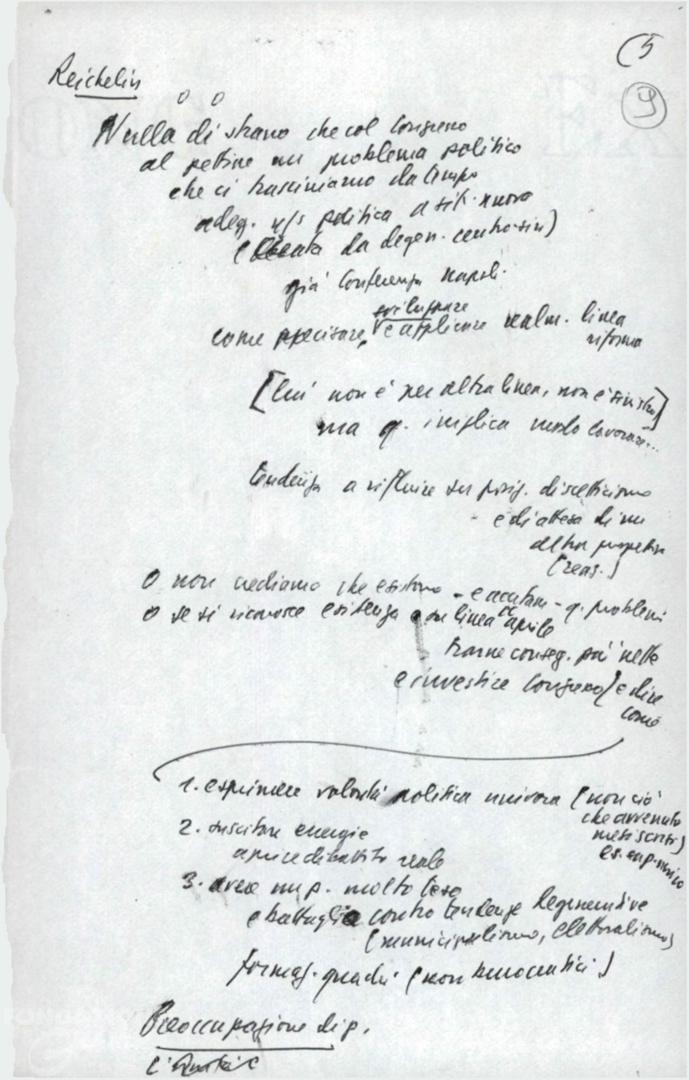 (5
9
Reichelin
Nulla di strano che col Congresso
al pettine un problema politico
che ci trasciniamo da tempo
adeg. n/s politica a sit. nuova
da degen. centro-sin)
già Conferenza Napoli.
sviluppare
come precisare, e applicare realm. linea
riforma
[lui non è per altra linea, non è sinistra]
ma q. implica modo lavorare...
tendenza a rifluire su posiz. di scetticismo
e di attesa di un
altra prospettiva
(reaz.)
o non crediamo che esistono - e acutam - q. problemi
o se si riconosce esistenza con linea CC aprile
trarne conseg. più nette
e investire Congresso) e dire
come
1. esprimere volontà politica univoca (non ciò
che avvenuto
mesi scorsi)
2. suscitare energie
aprire dibattito reale
3. avere un p. molto teso
e battaglia contro tendenze degenerative
(municipalismo, elettoralismo)
formaz. quadri (non burocratici)
Preoccupazione di p.